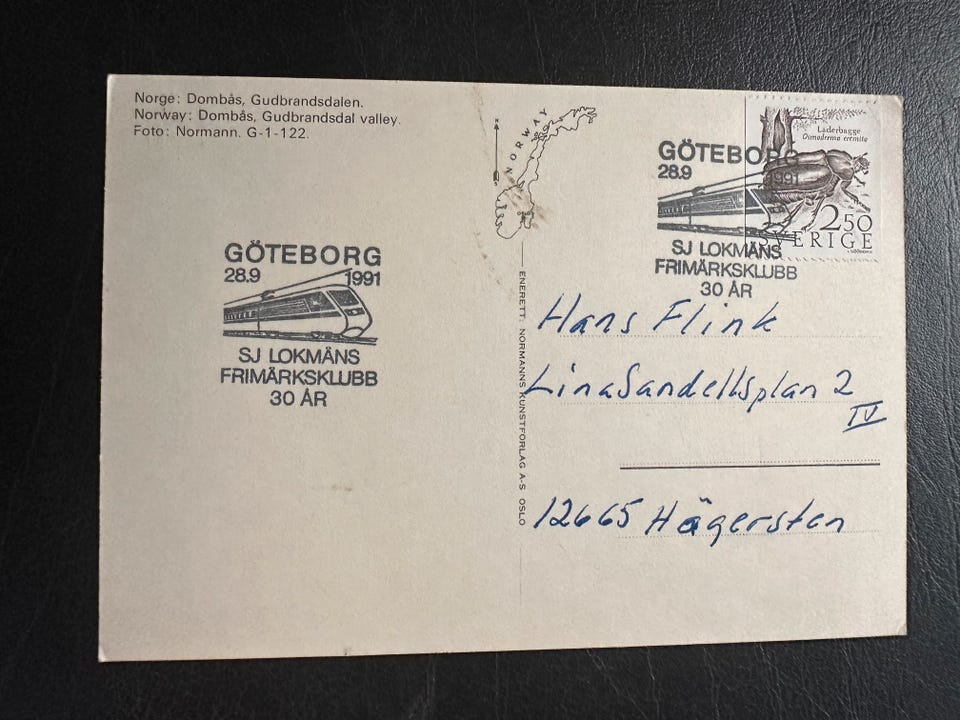 Norge: Dombås, Gudbrandsdalen.
Norway: Dombås, Gudbrandsdal valley.
Foto: Normann. G-1-122.
NORWAY
GÖTEBORG
28.9 1991
SJ LOKMÄNS
FRIMÄRKSKLUBB
30 ÅR
ENERETT: NORMANNS KUNSTFORLAG A-S OSLO
Läderbagge
Osmoderma eremita
2.50
SVERIGE
GÖTEBORG
28.9 1991
SJ LOKMÄNS
FRIMÄRKSKLUBB
30 ÅR
Hans Flink
LinaSandellsplan 2
IV
12665 Hägersten